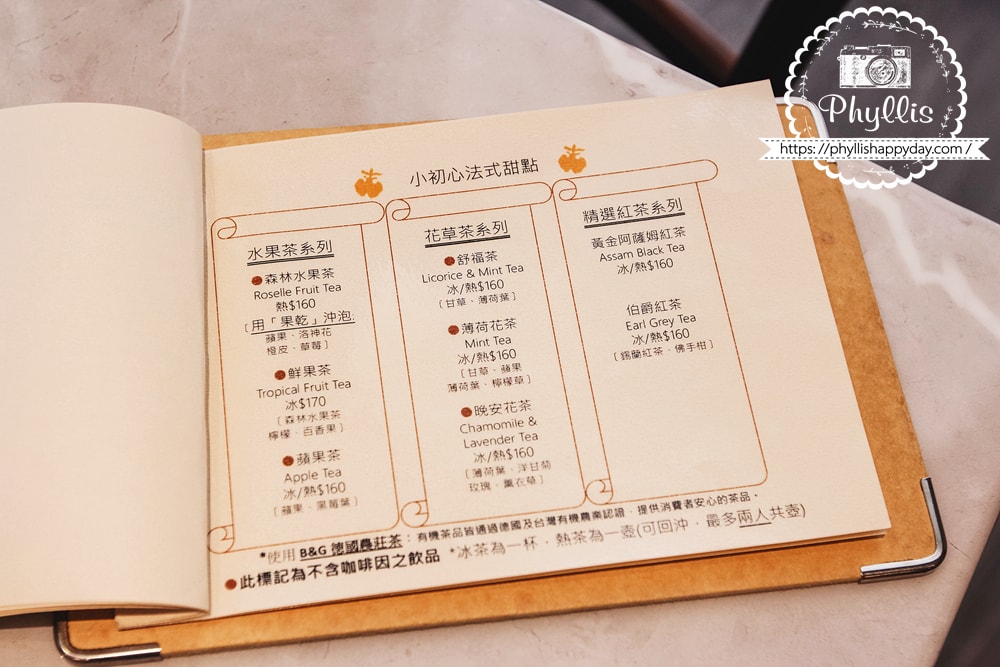 Phyllis
https://phyllishappyday.com/
小初心法式甜點
水果茶系列
森林水果茶
Roselle Fruit Tea
熱$160
[用「果乾」沖泡:
蘋果、洛神花
橙皮、草莓]
鮮果茶
Tropical Fruit Tea
冰$170
[森林水果茶
檸檬、百香果]
蘋果茶
Apple Tea
冰/熱$160
[蘋果、黑莓葉]
花草茶系列
舒福茶
Licorice & Mint Tea
冰/熱$160
[甘草、薄荷葉]
薄荷花茶
Mint Tea
冰/熱$160
[甘草、蘋果
薄荷葉、檸檬草]
晚安花茶
Chamomile &
Lavender Tea
冰/熱$160
[薄荷葉、洋甘菊
玫瑰、薰衣草]
精選紅茶系列
黃金阿薩姆紅茶
Assam Black Tea
冰/熱$160
伯爵紅茶
Earl Grey Tea
冰/熱$160
[錫蘭紅茶、佛手柑]
*使用 B&G 德國農莊茶：有機茶品皆通過德國及台灣有機農業認證，提供消費者安心的茶品。
此標記為不含咖啡因之飲品 *冰茶為一杯，熱茶為一壺(可回沖，最多兩人共壺)